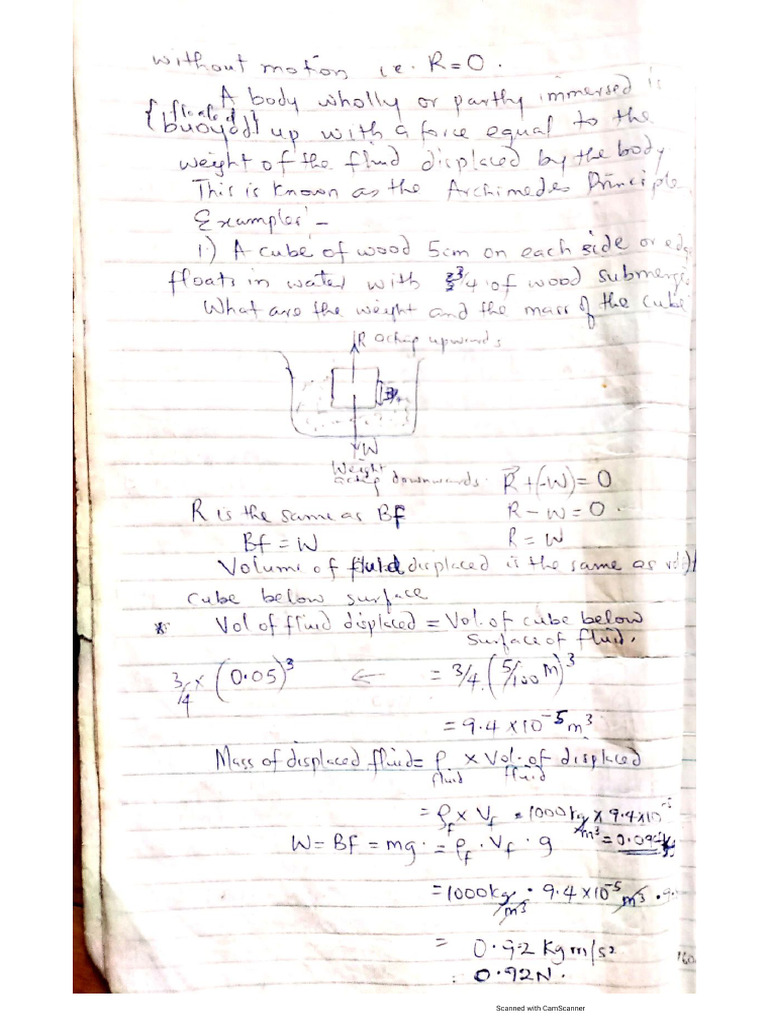 without motion i.e. R=0.
A body wholly or partly immersed is
{floated
{buoyed} up with a force equal to the
weight of the fluid displaced by the body
This is known as the Archimedes Principle
Examples:-
1.) A cube of wood 5cm on each side or edge
floats in water with 3/4 of wood submerge
What are the weight and the mass of the cube
R acting upwards
W
Weight
acting downwards. R+(-W)=0
R is the same as Bf R-W=0.
Bf=W R=W
Volume of fluid displaced is the same as vol of
cube below surface
* Vol of fluid displaced = Vol. of cube below
surface of fluid.
3/4 × (0.05)³ ← = 3/4.(5/100 m)³
= 9.4 × 10⁻⁵ m³.
Mass of displaced fluid = ρ × Vol. of displaced
fluid fluid
= ρf × Vf = 1000kg/m³ × 9.4×10⁻⁵
W = Bf = mg. = ρf . Vf . g
= 1000kg/m³ . 9.4 × 10⁻⁵ m³ . 9.
= 0.92 Kg m/s²
0.92N.
Scanned with CamScanner